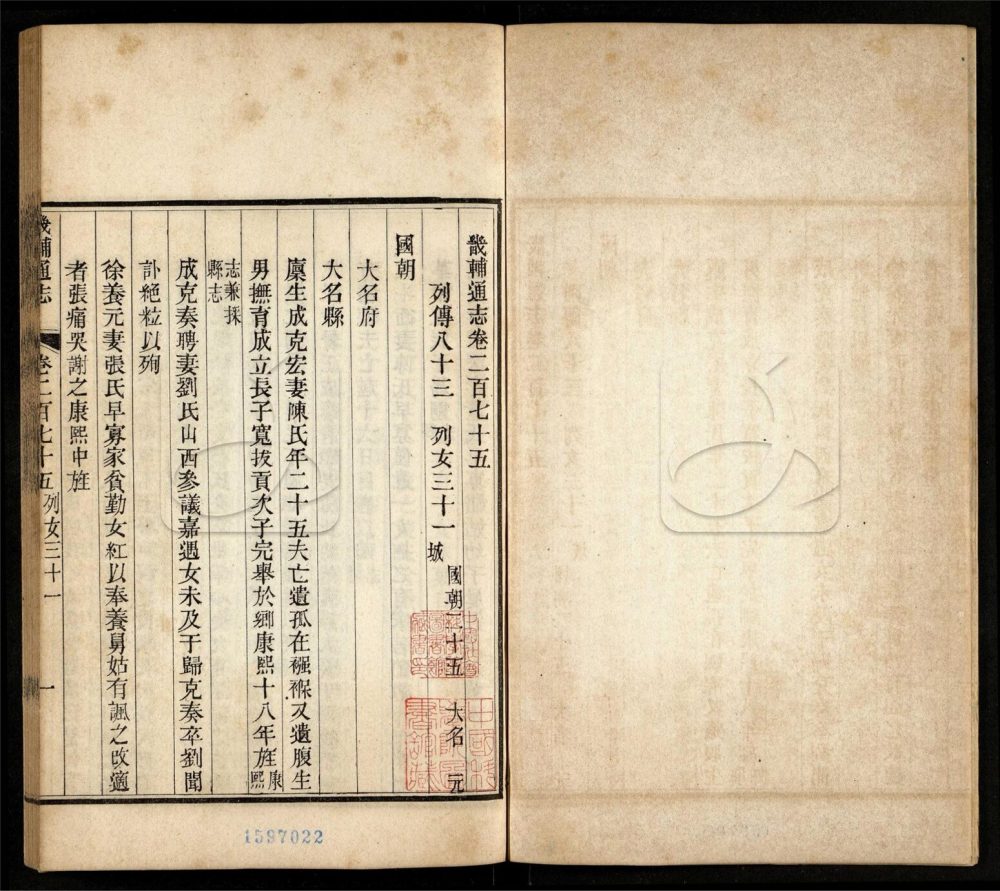 畿輔通志卷二百七十五
列傳八十三　列女三十一　國朝二十五　大名　元
城
國朝
大名府
大名縣
廩生成克宏妻陳氏年二十五夫亡遺孤在襁褓又遺腹生
男撫育成立長子寬拔貢次子完舉於鄉康熙十八年旌康熙
志兼採
縣志
成克奏聘妻劉氏山西參議嘉遇女未及于歸克奏卒劉聞
訃絕粒以殉
徐養元妻張氏早寡家貧勤女紅以奉養舅姑有諷之改適
者張痛哭謝之康熙中旌
畿輔通志　卷二百七十五　列女三十一　一
1597022